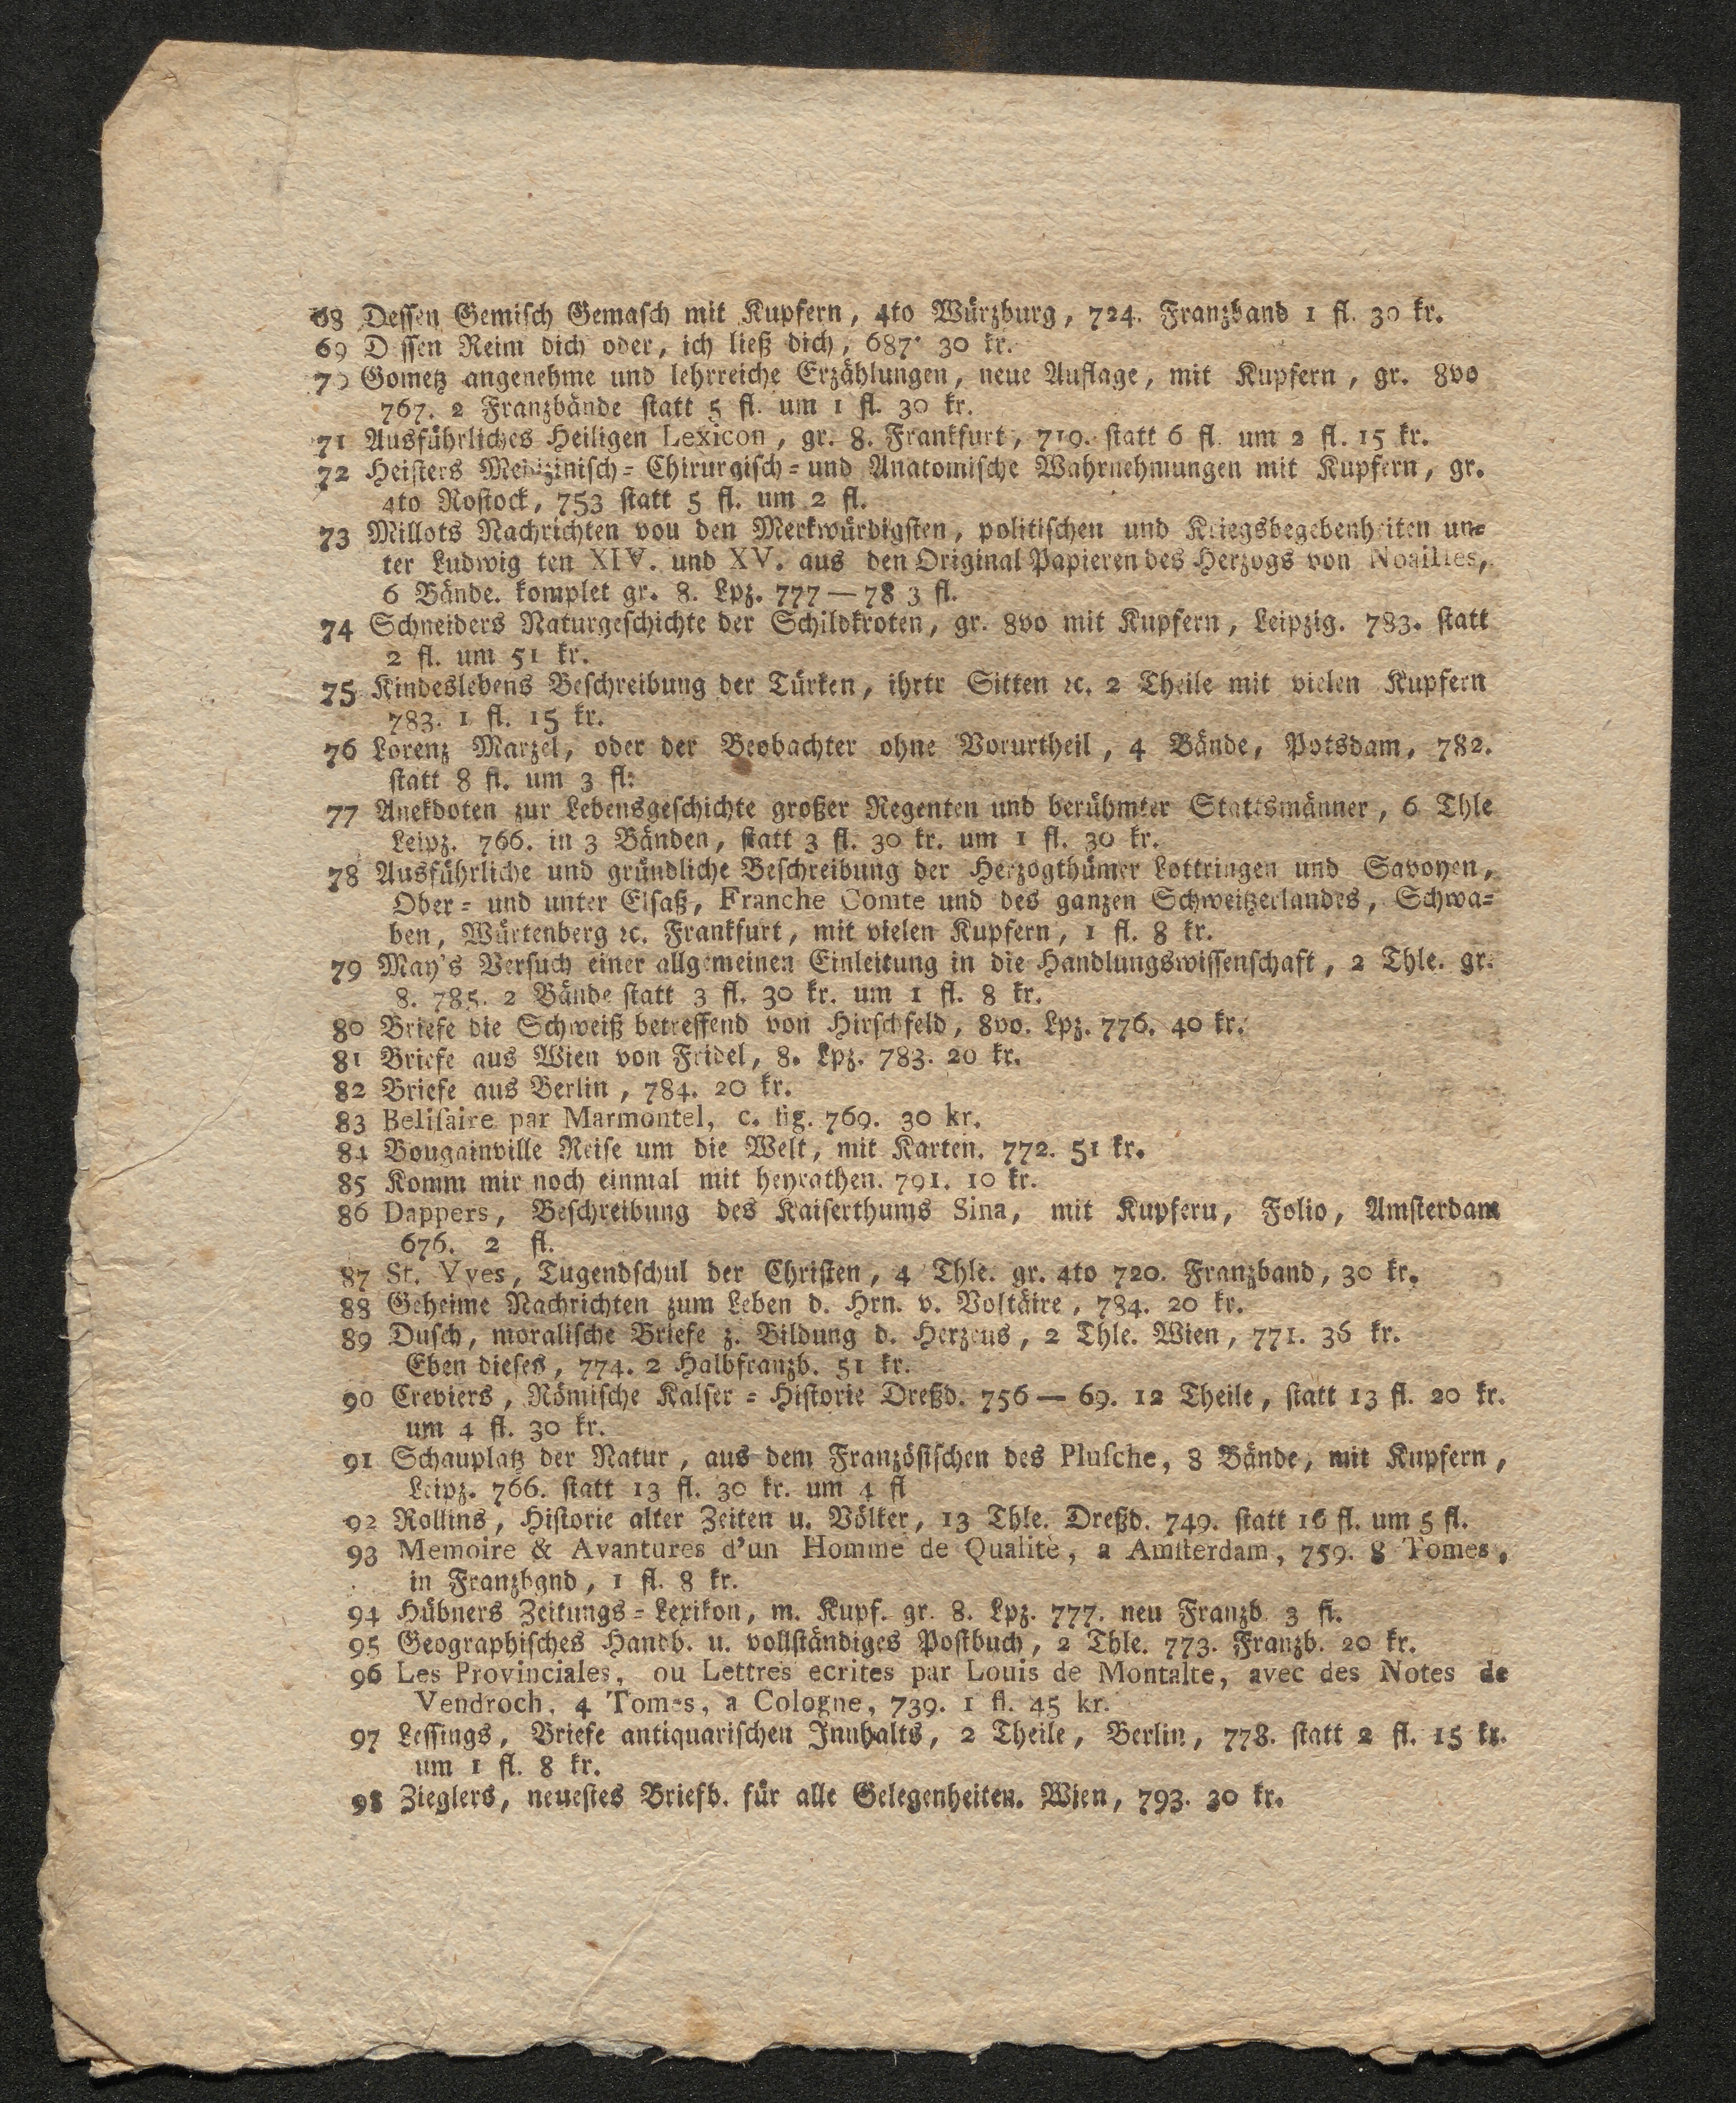 68 Dessen Gemisch Gemasch mit Kupfern, 4to Würzburg, 724. Franzband 1 fl. 30 kr.
69 D ssen Reim dich oder, ich ließ dich, 687. 30 kr.
70 Gometz angenehme und lehrreiche Erzählungen, neue Auflage, mit Kupfern, gr. 8vo
767. 2 Franzbände statt 5 fl. um 1 fl. 30 kr.
71 Ausführliches Heiligen Lexicon, gr. 8. Frankfurt, 719. statt 6 fl. um 2 fl. 15 kr.
72 Heisters Medizinisch= Chirurgisch= und Anatomische Wahrnehmungen mit Kupfern, gr.
4to Rostock, 753 statt 5 fl. um 2 fl.
73 Millots Nachrichten vou den Merkwürdigsten, politischen und Kriegsbegebenheiten un=
ter Ludwig ten XIV. und XV. aus den Original Papieren des Herzogs von Noailles,
6 Bände. komplet gr. 8. Lpz. 777 — 78 3 fl.
74 Schneiders Naturgeschichte der Schildkroten, gr. 8vo mit Kupfern, Leipzig. 783. statt
2 fl. um 51 kr.
75 Kindeslebens Beschreibung der Türken, ihrtr Sitten ꝛc. 2 Theile mit vielen Kupfern
783. 1 fl. 15 kr.
76 Lorenz Marzel, oder der Beobachter ohne Vorurtheil, 4 Bände, Potsdam, 782.
statt 8 fl. um 3 fl:
77 Anekdoten zur Lebensgeschichte großer Regenten und berühmter Stattsmänner, 6 Thle
Leipz. 766. in 3 Bänden, statt 3 fl. 30 kr. um 1 fl. 30 kr.
78 Ausführliche und gründliche Beschreibung der Herzogthümer Lottringen und Savoyen,
Ober= und unter Elsaß, Franche Comte und des ganzen Schweitzerlandes, Schwa=
ben, Würtenberg ꝛc. Frankfurt, mit vielen Kupfern, 1 fl. 8 kr.
79 May's Versuch einer allgemeinen Einleitung in die Handlungswissenschaft, 2 Thle. gr.
8. 785. 2 Bände statt 3 fl. 30 kr. um 1 fl. 8 kr.
80 Briefe die Schweiß betreffend von Hirschfeld, 8vo. Lpz. 776. 40 kr.
81 Briefe aus Wien von Fridel, 8. Lpz. 783. 20 kr.
82 Briefe aus Berlin, 784. 20 kr.
83 Beliſaire par Marmontel, c. fig. 769. 30 kr.
84 Bougainville Reise um die Welt, mit Karten. 772. 51 kr.
85 Komm mir noch einmal mit heyrathen. 791. 10 kr.
86 Dappers, Beschreibung des Kaiserthums Sina, mit Kupferu, Folio, Amsterdam
676. 2 fl.
87 St. Yves, Tugendschul der Christen, 4 Thle. gr. 4to 720. Franzband, 30 kr.
88 Geheime Nachrichten zum Leben d. Hrn. v. Voltäire, 784. 20 kr.
89 Dusch, moralische Briefe z. Bildung d. Herzeus, 2 Thle. Wien, 771. 36 kr.
Eben dieses, 774. 2 Halbfranzb. 51 kr.
90 Creviers, Römische Kalser= Historie Dreßd. 756 — 69. 12 Theile, statt 13 fl. 20 kr.
um 4 fl. 30 kr.
91 Schauplatz der Natur, aus dem Französischen des Pluſche, 8 Bände, mit Kupfern,
Leipz. 766. statt 13 fl. 30 kr. um 4 fl
92 Rollins, Historie alter Zeiten u. Völker, 13 Thle. Dreßd. 749. statt 16 fl. um 5 fl.
93 Memoire & Avantures d'un Homme de Qualitè, a Amſterdam, 759. 8 Tomes,
in Franzbgnd, 1 fl. 8 kr.
94 Hübners Zeitungs= Lexikon, m. Kupf. gr. 8. Lpz. 777. neu Franzb 3 fl.
95 Geographisches Handb. u. vollständiges Postbuch, 2 Thle. 773. Franzb. 20 kr.
96 Les Provinciales, ou Lettres ecrites par Louis de Montalte, avec des Notes de
Vendroch, 4 Tomes, a Cologne, 739. 1 fl. 45 kr.
97 Lessings, Briefe antiquarischen Innhalts, 2 Theile, Berlin, 778. statt 2 fl. 15 kr.
um 1 fl. 8 kr.
98 Zieglers, neuestes Briefb. für alle Gelegenheiten. Wien, 793. 30 kr.